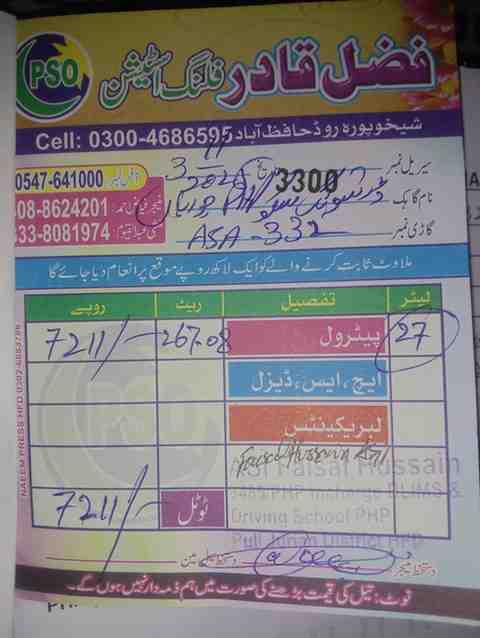 PSO
فضل قادر فلنگ اسٹیشن
شیخوپورہ روڈ حافظ آباد Cell: 0300-4686595
سیریل نمبر 3300
0547-641000
نام گاہک
08-8624201
گاڑی نمبر ASA-332
33-8081974
ملاوٹ ثابت کرنے والے کو ایک لاکھ روپے موقع پر انعام دیا جائے گا
لیٹر تفصیل ریٹ روپے
27 پیٹرول 267.08 7211/-
ایچ، ایس، ڈیزل
لبریکینٹس
Faisal Hussain ASI
ASI Faisal Hussain
PHP Incharge DLIMS &
Driving School PHP
District HFD
ٹوٹل 7211/-
دستخط منیجر دستخط سیل مین
نوٹ: تیل کی قیمت بڑھنے کی صورت میں ہم ذمہ دار نہیں ہوں گے۔
NAEEM PRESS HFD 0302-6683786